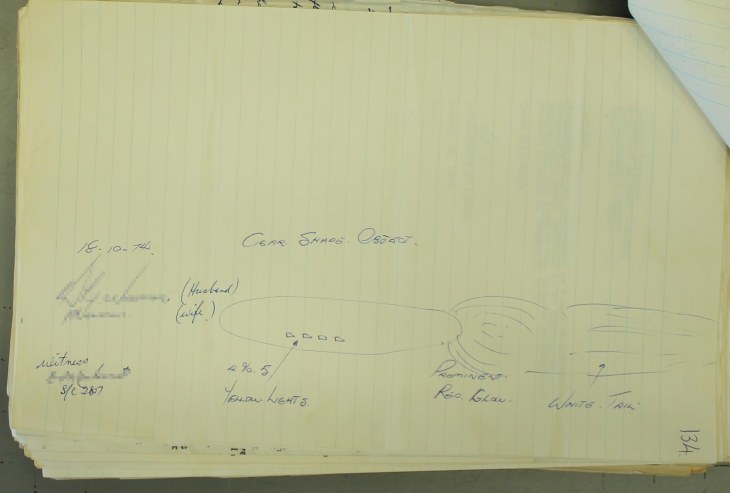 18-10-74.
CGAR SHAPE OBJECT.
(Husband)
(wife)
Witness
S/C 2807
4 No. 5
YELLOW LIGHTS.
PROMINENT.
RED. GLOW.
WHITE. TAIL
134